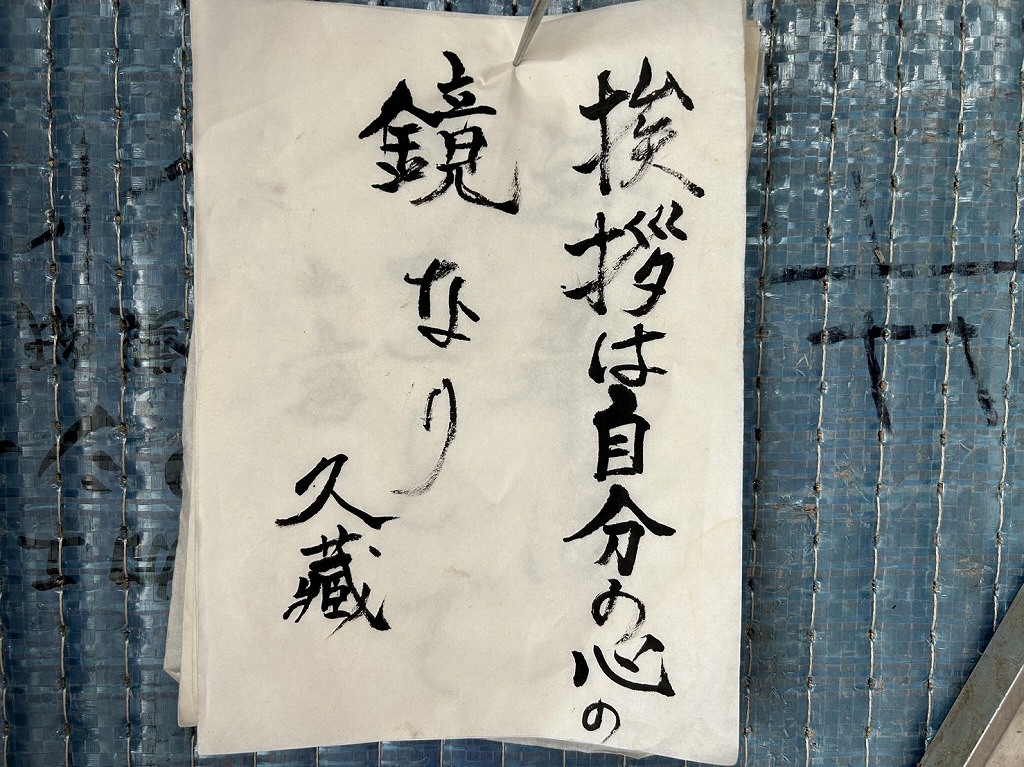 挨拶は自分の心の
鏡なり
久藏